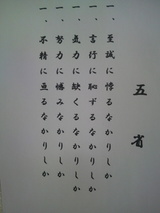 五省
一、至誠に悖るなかりしか
一、言行に恥ずるなかりしか
一、気力に欠くるなかりしか
一、努力に憾みなかりしか
一、不精に亘るなかりしか